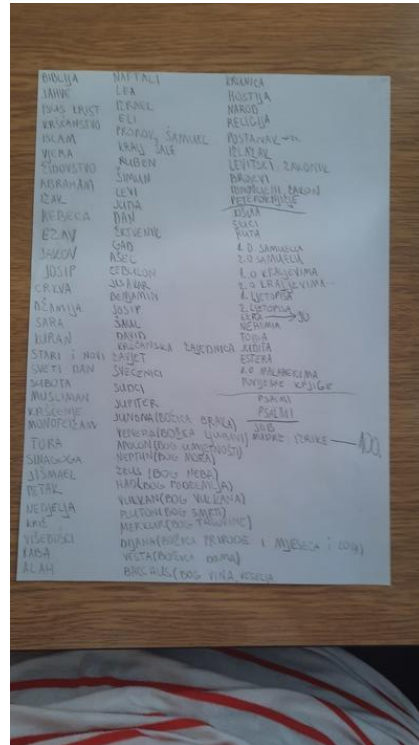 BIBLIJA
JAHVE
ISUS KRIST
KRŠĆANSTVO
ISLAM
VJERA
ŽIDOVSTVO
ABRAHAM
IZAK
REBECA
EZAV
JAKOV
JOSIP
CRKVA
DŽAMIJA
SARA
KURAN
STARI I NOVI ZAVJET
SVETI DAN
SUBOTA
MUSLIMAN
KRŠĆENJE
MONOTEIZAM
TORA
SINAGOGA
JIŠMAEL
PETAK
NEDJELJA
KRIŽ
VIŠEBOŠCI
KABA
ALAH
NAFTALI
LEA
IZRAEL
ELI
PROROK ŠAMUEL
KRALJ ŠAUL
RUBEN
ŠIMUN
LEVI
JUDA
DAN
GAD
AŠER
ZEBULON
JISAKAR
BENJAMIN
JOSIP
ŠAUL
DAVID
KRŠĆANSKA ZAJEDNICA
SVEĆENICI
SUDCI
JUPITER
JUNONA (BOŽICA BRAKA)
VENERA (BOŽICA LJUBAVI)
APOLON (BOG UMJETNOSTI)
NEPTUN (BOG MORA)
ZEUS (BOG NEBA)
HAD (BOG PODZEMLJA)
VULKAN (BOG VULKANA)
PLUTON (BOG SMRTI)
MERKUR (BOG TRGOVINE)
DIJANA (BOŽICA PRIRODE I MJESECA I LOVA)
VESTA (BOŽICA DOMA)
BAKCHUS (BOG VINA, VESELJA
KRUNICA
HOSTIJA
NAROD
RELIGIJA
POSTANAK
IZLAZAK
LEVITSKI ZAKONIK
BROJEVI
PONOVLJENI ZAKON
PETEROKNJIŽJE
JOŠUA
SUCI
RUTA
1. O SAMUELU
2. O SAMUELU
1. O KRALJEVIMA
2. O KRALJEVIMA
1. LJETOPISA
2. LJETOPISA
EZRA
NEHEMIJA
TOBIJA
JUDITA
ESTERA
MAKABEJCIMA
POVIJESNE KNJIGE
PSALMI
PSALMI
JOB
MUDRE IZREKE — 100.